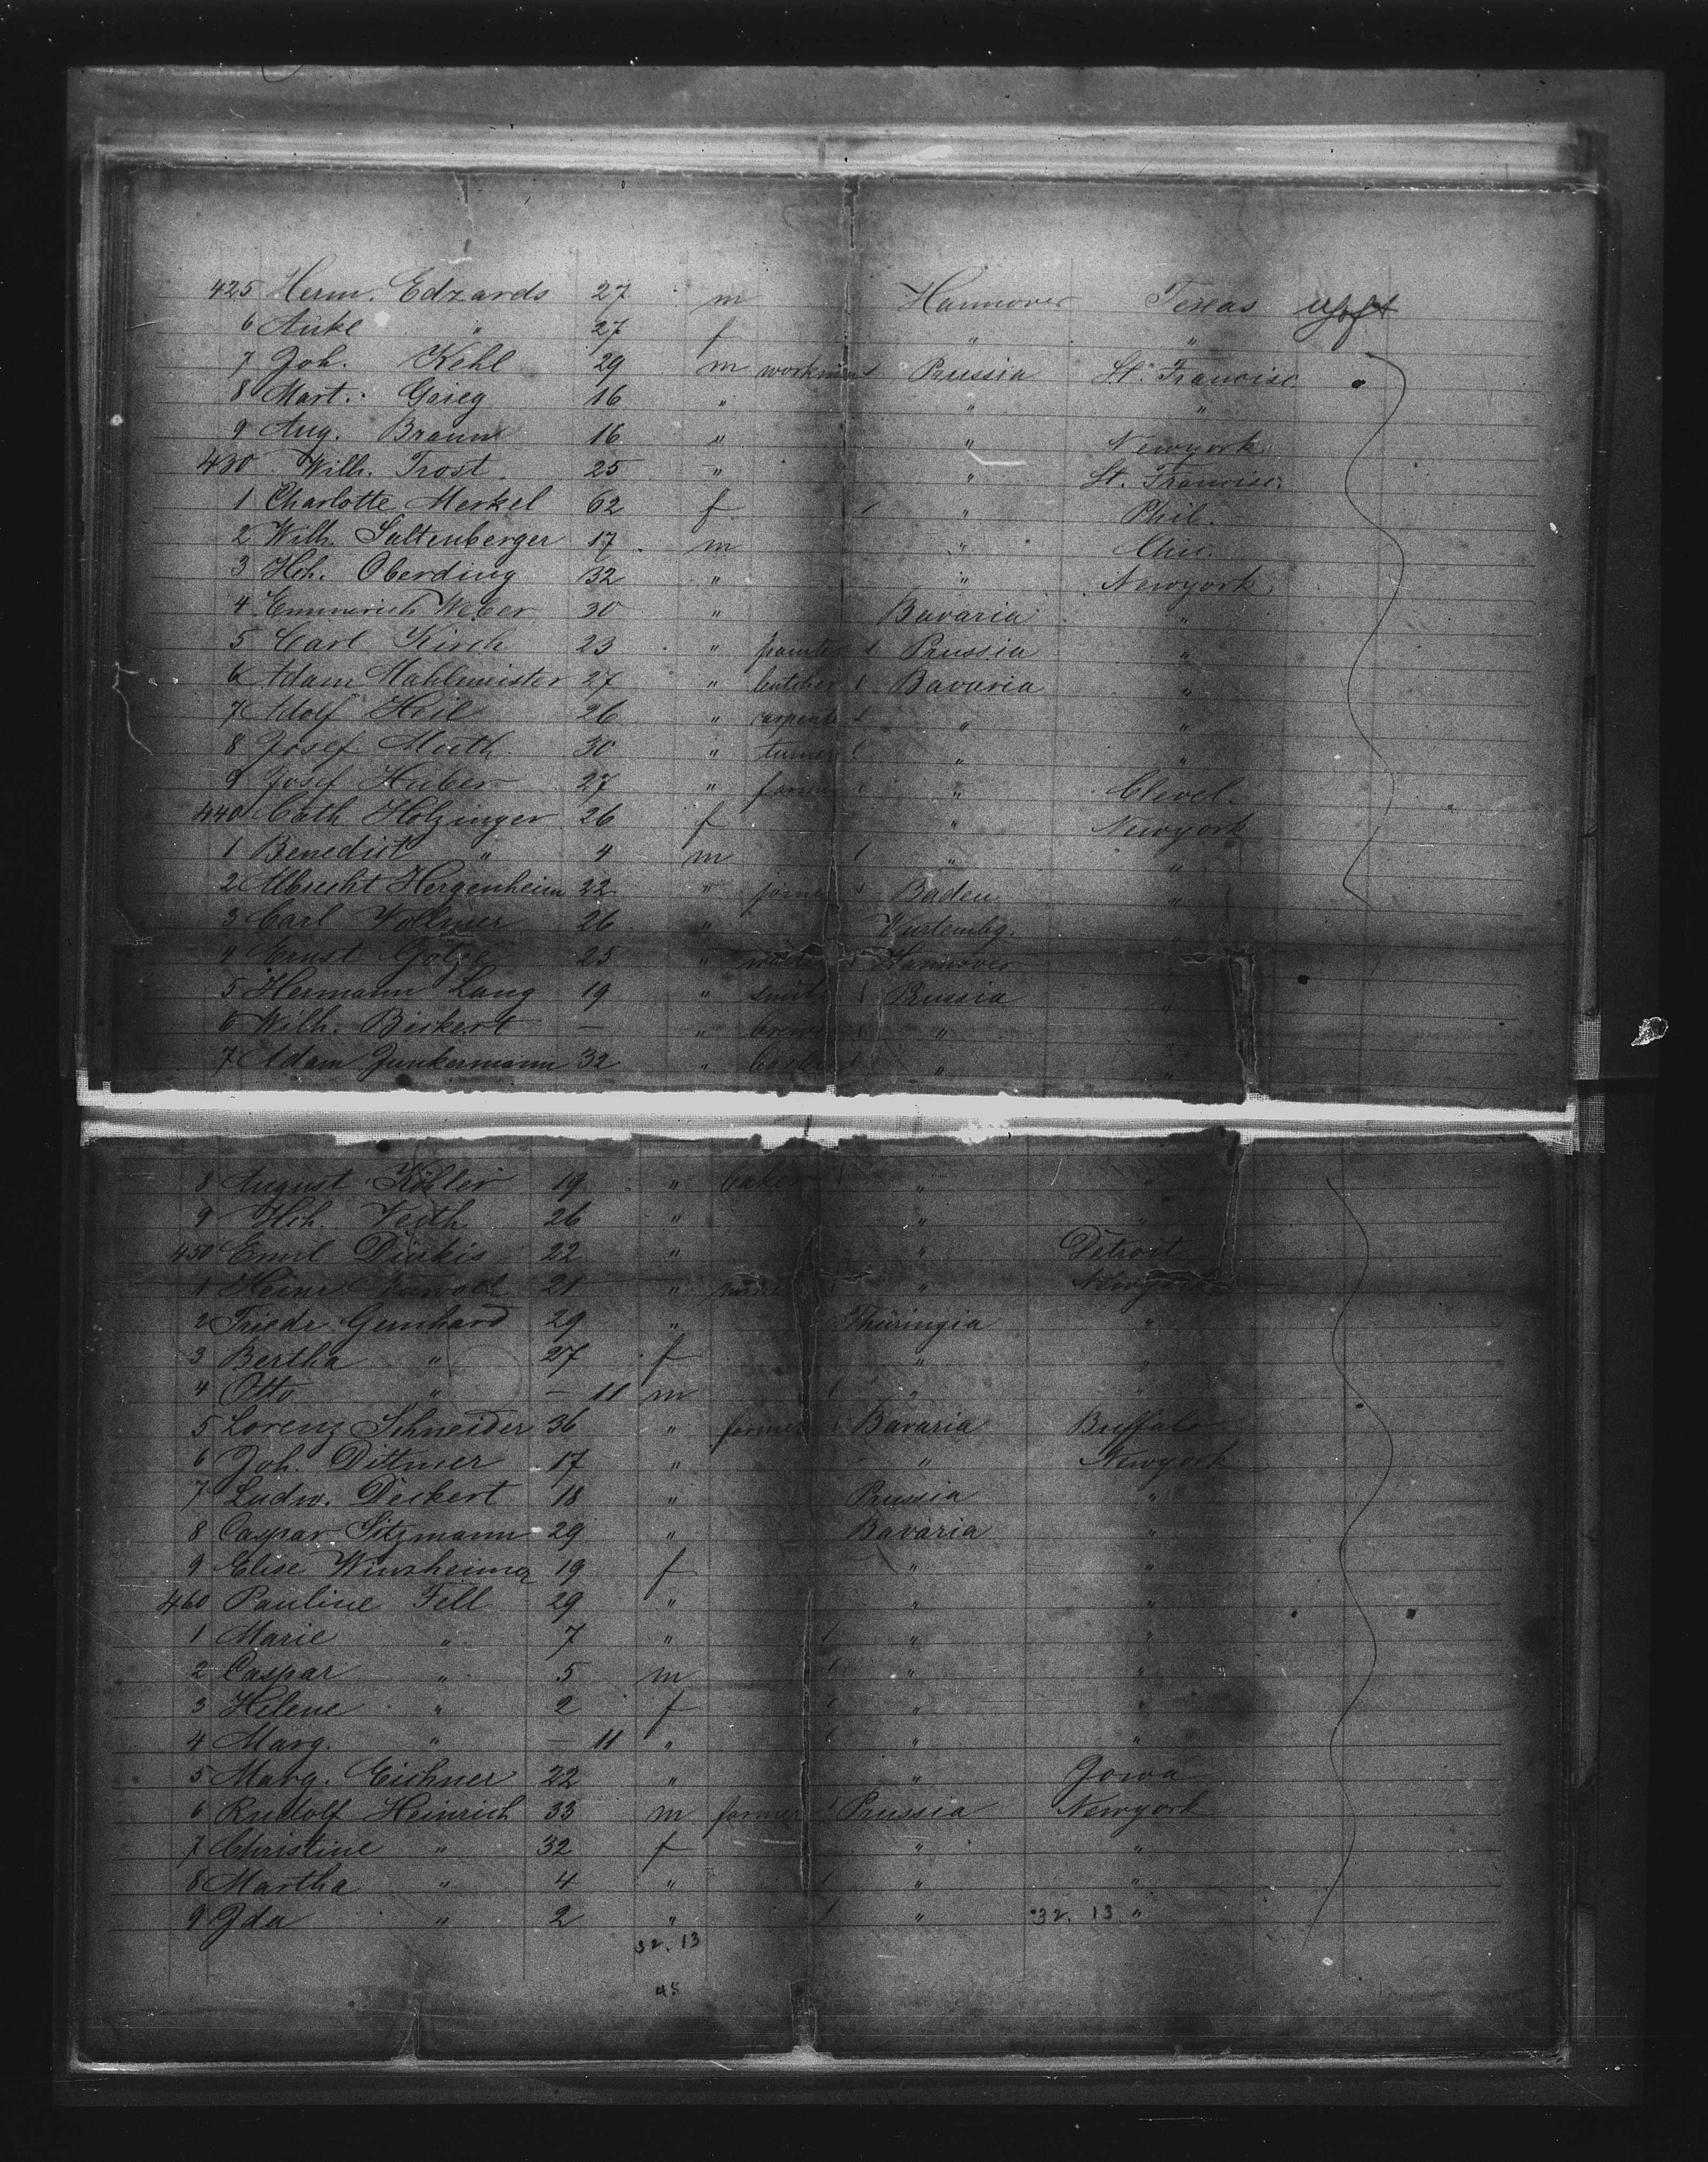 425 Herm. Edzards 27 m Hannover Texas
6 Auke " 27 f " "
7 Joh. Kehl 29 m workman 1 Prussia St. Francisc
8 Mart. Grieg 16 " " "
9 Aug. Braun 16 " " Newyork
430 Wilh. Trost 25 " " St. Francisc.
1 Charlotte Merkel 62 f 1 " Phil.
2 Wilh. Saltenberger 17 m "
3 Hch. Oberding 32 " " Newyork
4 Emmerich Weber 30 " Bavaria "
5 Carl Kirch 23 " painter 1 Prussia "
6 Adam Mahlmeister 27 " butcher 1 Bavaria "
7 Adolf Heil 26 " carpente 1 " "
8 Josef Moth 30 " turner " "
9 Josef Huber 27 " farme " Clevel.
440 Cath Holzinger 26 f " Newyork
1 Benedict " 4 m 1 " "
2 Albrecht Hergenheim 22 " 1 Baden "
3 Carl Vollmer 26 " Wurtembg. "
4 Ernst Götze 25 " 1 Hannover
5 Hermann Lang 19 " smith 1 Prussia "
6 Wilh. Bickert — " brewer 1 " "
7 Adam Junkermann 32 " 1 " "
8 August Köhler 19 " baker 1 " "
9 Hch. Veith 26 " " "
450 Emil 22 " " Detroit
1 Heinr 21 " 1 " Newyork
2 Friedr Gernhard 29 " Thüringia "
3 Bertha " 27 f " "
4 Otto " — 11 m 1 " "
5 Lorenz Schneider 36 " farmer 1 Bavaria Buffalo
6 Joh. Dittmer 17 " " Newyork
7 Ludw. Deckert 18 " Prussia "
8 Caspar Sitzmann 29 " Bavaria "
9 Elise Winsheimer 19 f " "
460 Pauline Fell 29 " " "
1 Marie " 7 " 1 " "
2 Caspar " 5 m 1 " "
3 Helene " 2 f 1 " "
4 Marg. " — 11 " 1 " "
5 Marg. Eichner 22 " " Jowa
6 Rudolf Heinrich 33 m farmer 1 Prussia Newyork
7 Christine " 32 f " "
8 Martha " 4 " 1 " "
9 Ida " 2 " 1 " 32. 13 "
32. 13
45